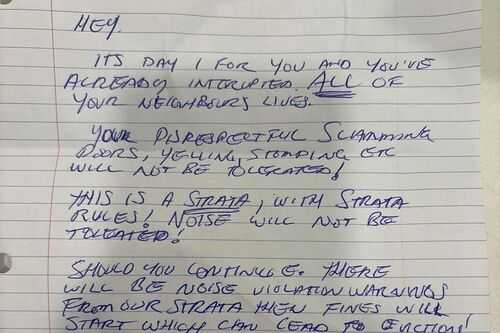 HEY.
ITS DAY 1 FOR YOU AND YOU'VE
ALREADY INTERUPTED ALL OF
YOUR NEIGHBOURS LIVES.
YOUR DISRESPECTFUL SLAMMING
DOORS, YELLING, STOMPING ETC
WILL NOT BE TOLERATED!
THIS IS A STRATA, WITH STRATA
RULES! NOISE WILL NOT BE
TOLEATED!
SHOULD YOU CONTINUE. THERE
WILL BE NOISE VIOLATION WARNINGS
FROM OUR STRATA THEN FINES WILL
START WHICH CAN LEAD TO EVICTION!